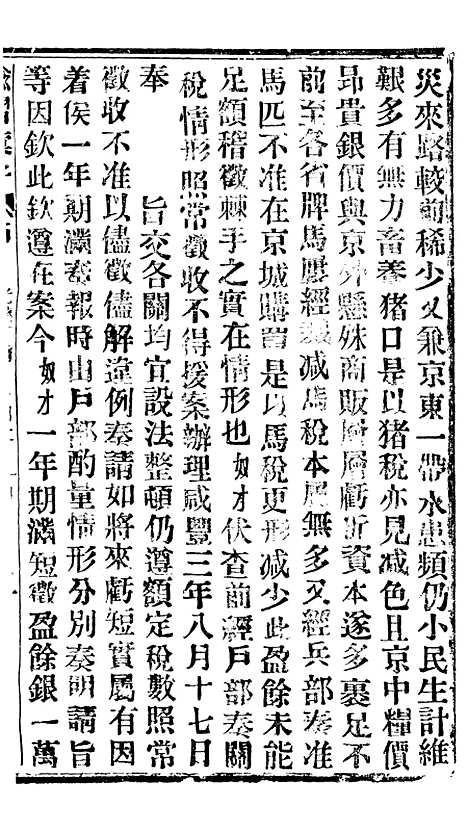 災來路較前稀少又兼京東一帶水患頻仍小民生計維
艱多有無力畜養猪口是以猪稅亦見减色且京中糧價
昻貴銀價與京外懸殊商販層層虧折資本遂多裹足不
前至各省牌馬屢經裁减馬稅本屬無多又經兵部奏准
馬匹不准在京城購買是以馬稅更形减少此盈餘未能
足額稽徵棘手之實在情形也奴才伏查前經戶部奏關
稅情形照常徵收不得援案辦理咸豐三年八月十七日
奉
旨交各關均宜設法整頓仍遵額定稅數照常
徵收不准以儘徵儘解違例奏請如將來虧短實屬有因
着俟一年期滿奏報時由戶部酌量情形分別奏明請旨
等因欽此欽遵在案今奴才一年期滿短徵盈餘銀一萬